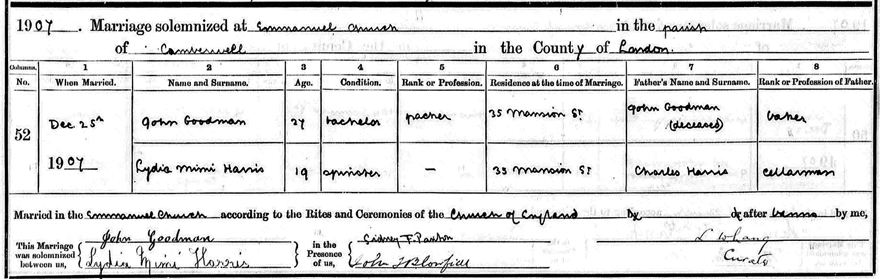 1907. Marriage solemnized at Emmanuel Church in the parish
of Camberwell in the County of London.
Columns. 1 2 3 4 5 6 7 8
No. When Married. Name and Surname. Age. Condition. Rank or Profession. Residence at the time of Marriage. Father's Name and Surname. Rank or Profession of Father.
52 Dec 25th John Goodman 27 bachelor packer 35 Mansion St John Goodman (deceased) baker
1907 Lydia Mimi Harris 19 spinster — 35 Mansion St Charles Harris cellarman
Married in the Emmanuel Church according to the Rites and Ceremonies of the Church of England by or after banns by me,
This Marriage was solemnized between us, John Goodman in the Presence of us, Sidney F.
Lydia Mimi Harris John Curate